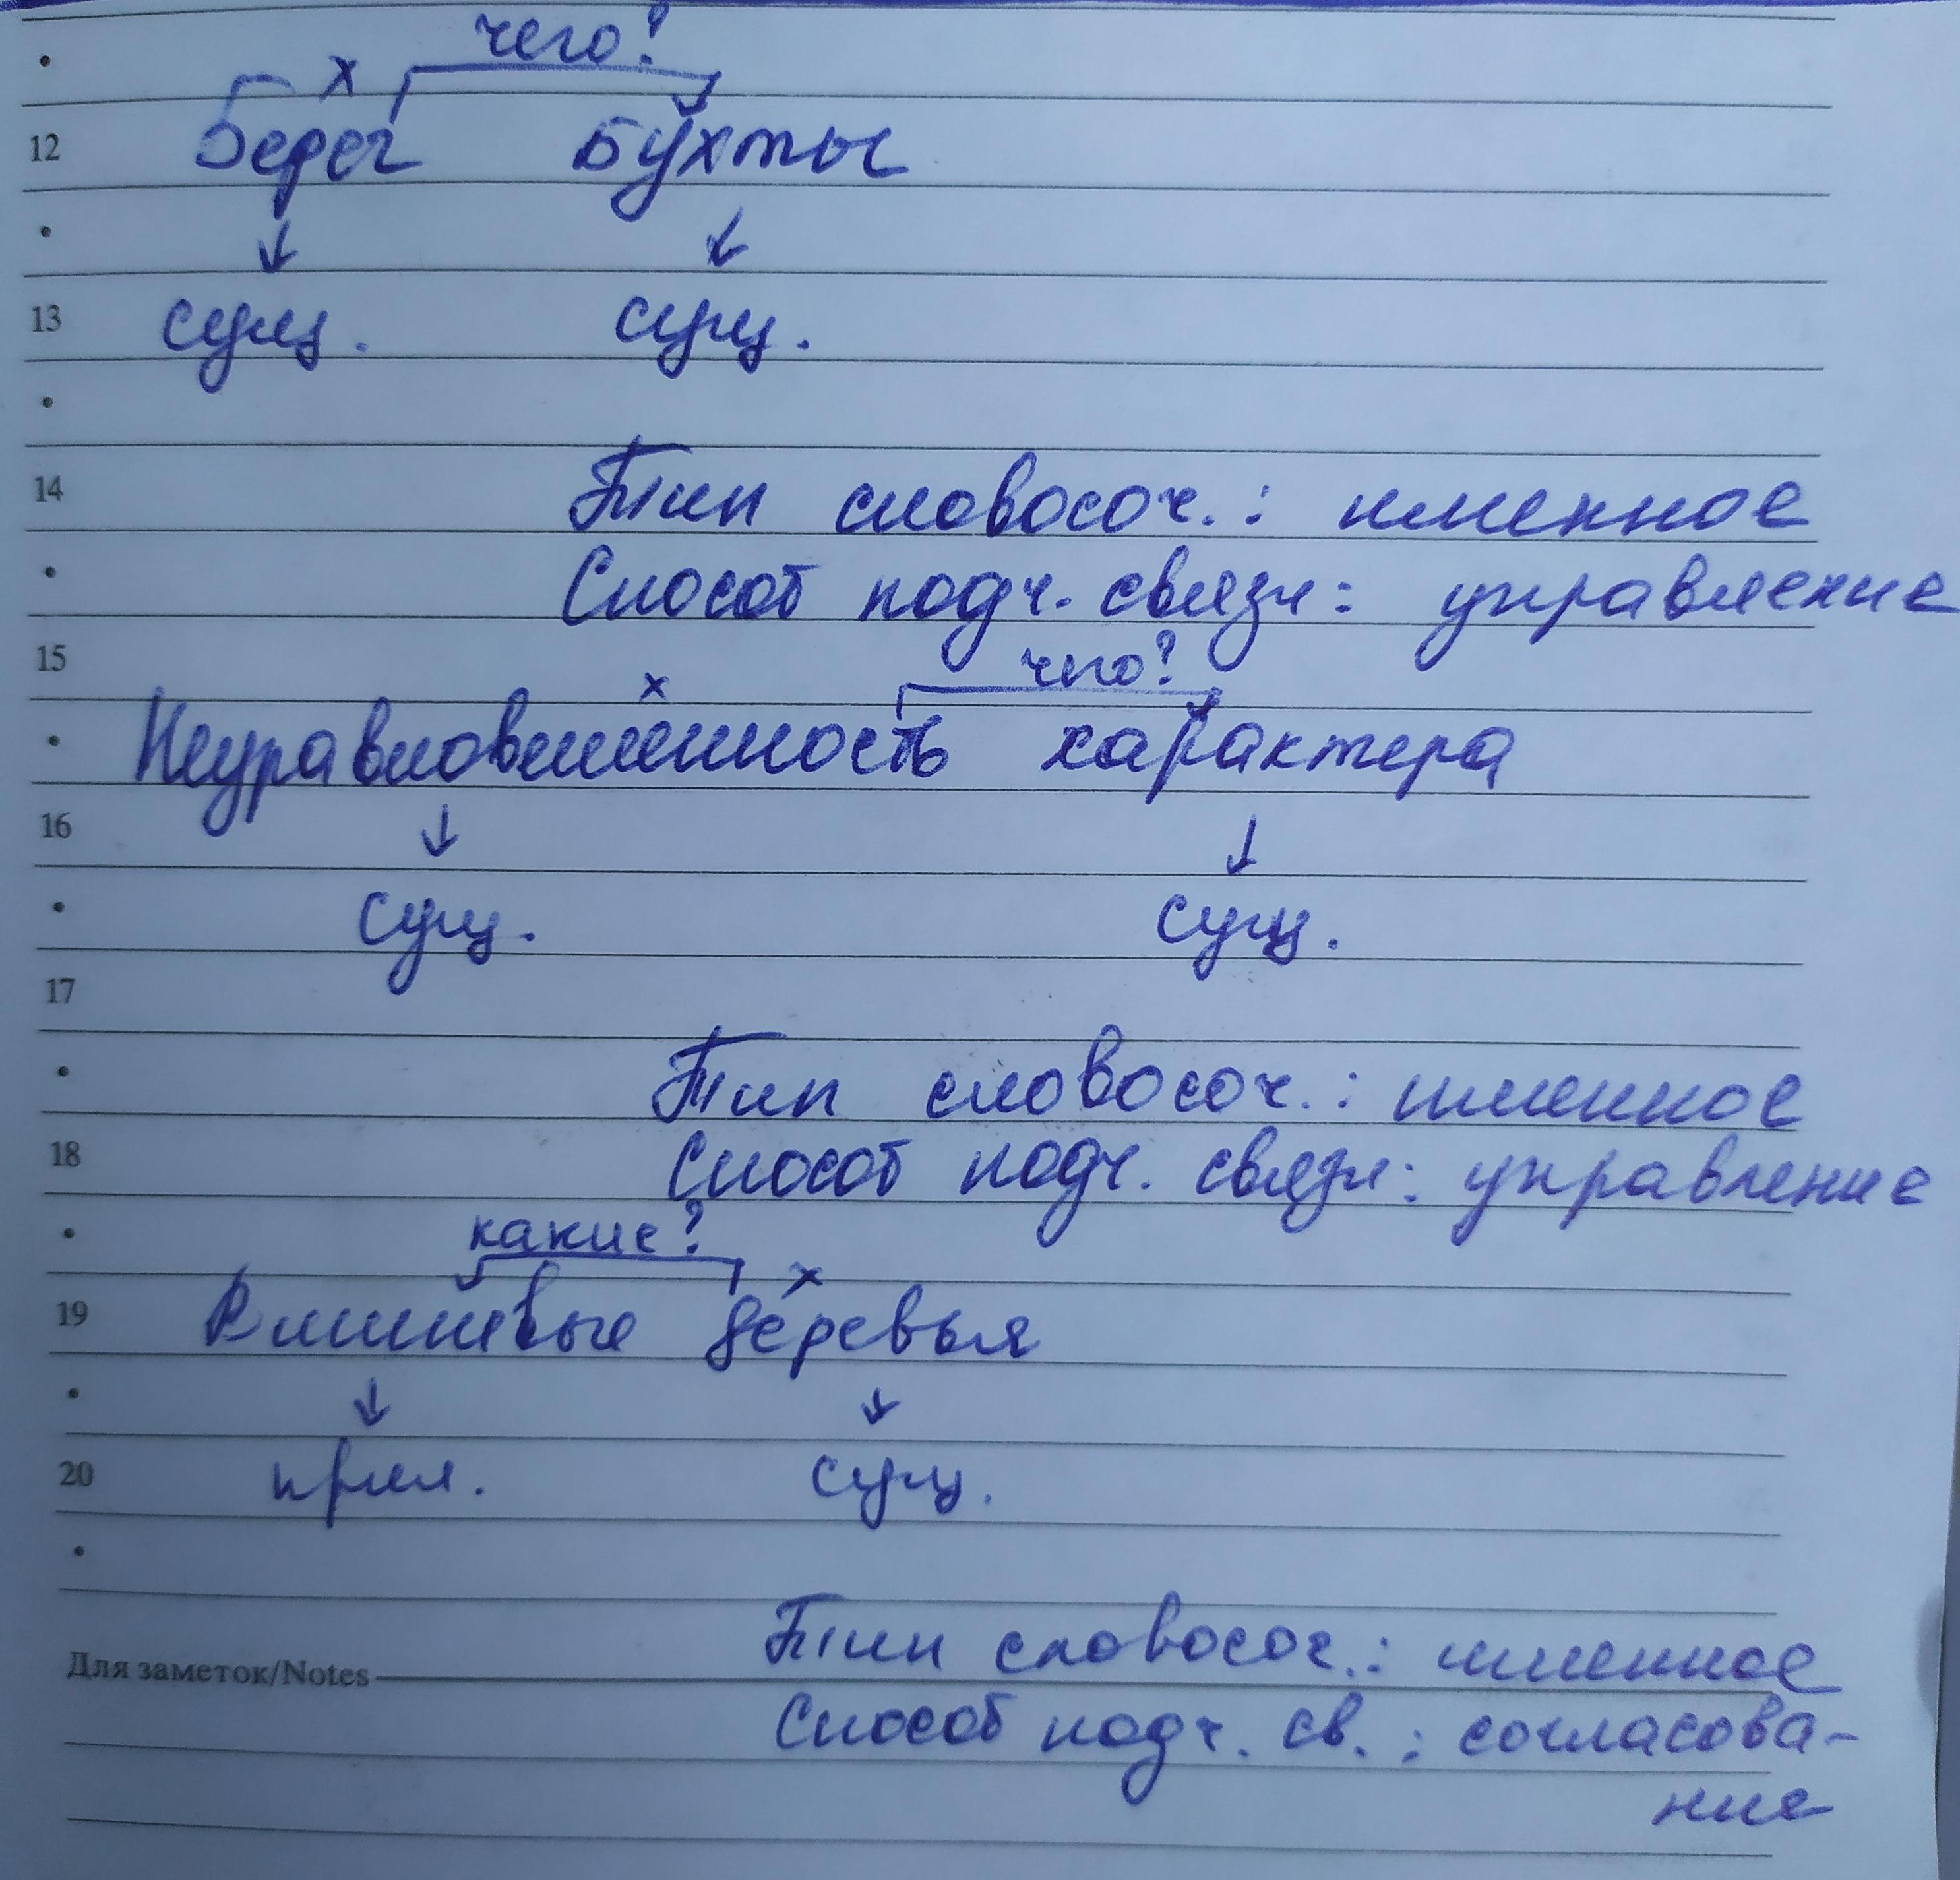 чего?
х
12 Берег бухты
13 сущ. сущ.
14 Тип словосоч.: именное
Способ подч. связи: управление
15 чего?
х
Неуравновешенность характера
16
сущ. сущ.
17
Тип словосоч.: именное
18 Способ подч. связи: управление
какие?
х
19 Вишнёвые деревья
20 прил. сущ.
Тип словосоч.: именное
Для заметок/Notes
Способ подч. св.: согласова-
ние